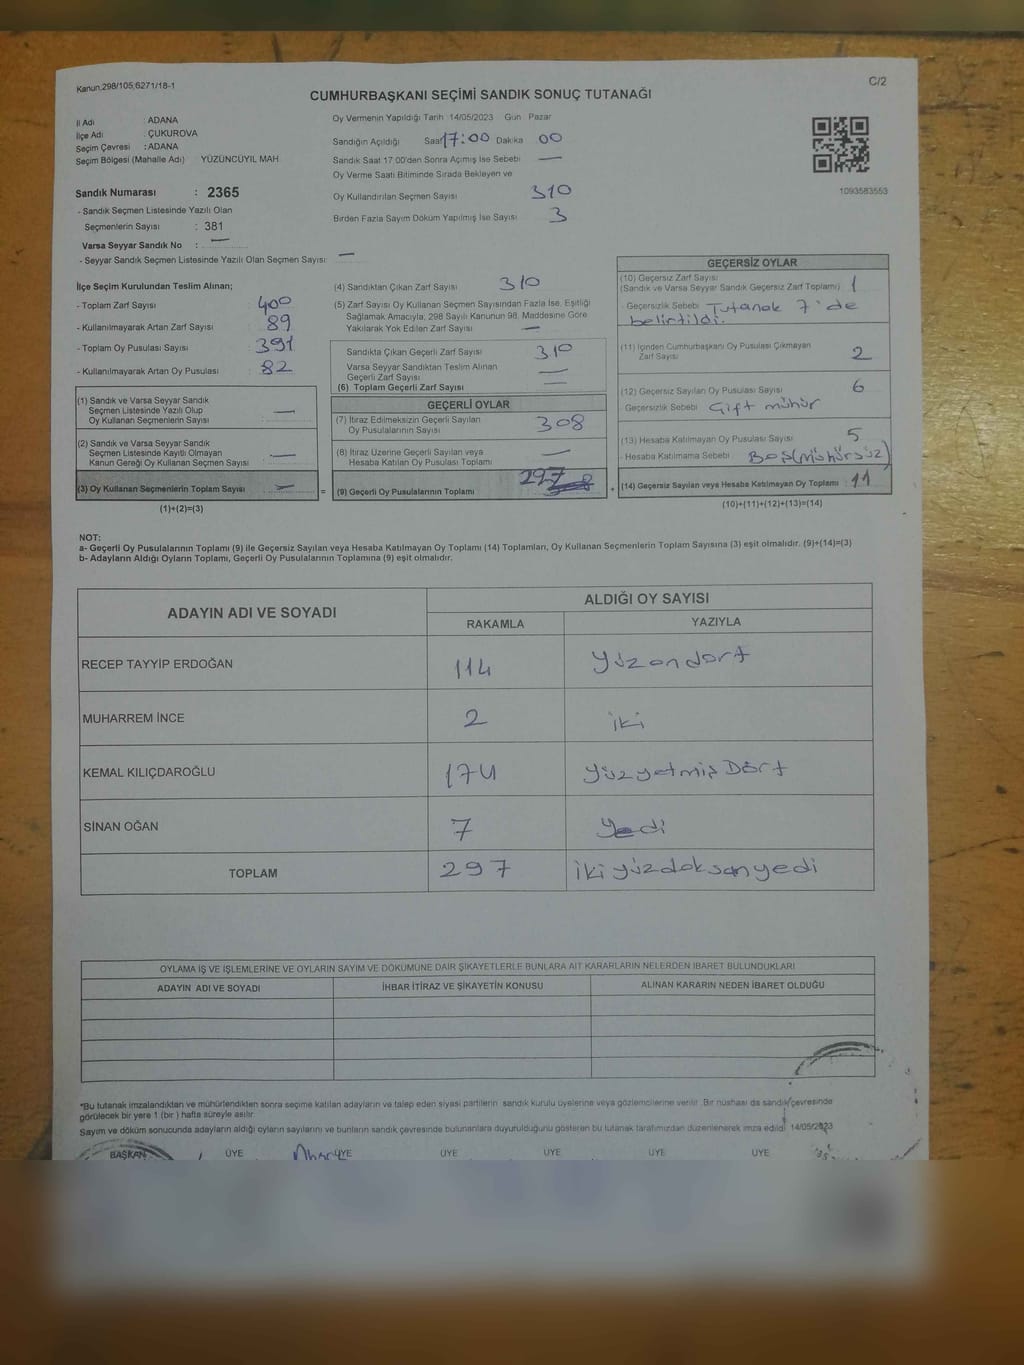 Kanun:298/105;6271/18-1
C/2
CUMHURBAŞKANI SEÇİMİ SANDIK SONUÇ TUTANAĞI
İl Adı : ADANA
İlçe Adı : ÇUKUROVA
Seçim Çevresi : ADANA
Seçim Bölgesi (Mahalle Adı) YÜZÜNCÜYIL MAH.
Sandık Numarası : 2365
- Sandık Seçmen Listesinde Yazılı Olan
Seçmenlerin Sayısı : 381
Varsa Seyyar Sandık No : —
- Seyyar Sandık Seçmen Listesinde Yazılı Olan Seçmen Sayısı : —
Oy Vermenin Yapıldığı Tarih :14/05/2023 Gün : Pazar
Sandığın Açıldığı Saat 17:00 Dakika 00
Sandık Saat 17:00'den Sonra Açımış İse Sebebi —
Oy Verme Saati Bitiminde Sırada Bekleyen ve
Oy Kullandırılan Seçmen Sayısı 310
Birden Fazla Sayım Döküm Yapılmış İse Sayısı 3
1093583553
İlçe Seçim Kurulundan Teslim Alınan;
- Toplam Zarf Sayısı : 400
- Kullanılmayarak Artan Zarf Sayısı : 89
- Toplam Oy Pusulası Sayısı : 391
- Kullanılmayarak Artan Oy Pusulası : 82
(1) Sandık ve Varsa Seyyar Sandık
Seçmen Listesinde Yazılı Olup
Oy Kullanan Seçmenlerin Sayısı : —
(2) Sandık ve Varsa Seyyar Sandık
Seçmen Listesinde Kayıtlı Olmayan
Kanun Gereği Oy Kullanan Seçmen Sayısı : —
(3) Oy Kullanan Seçmenlerin Toplam Sayısı : —
(1)+(2)=(3)
(4) Sandıktan Çıkan Zarf Sayısı : 310
(5) Zarf Sayısı Oy Kullanan Seçmen Sayısından Fazla İse, Eşitliği
Sağlamak Amacıyla, 298 Sayılı Kanunun 98. Maddesine Göre
Yakılarak Yok Edilen Zarf Sayısı : —
Sandıkta Çıkan Geçerli Zarf Sayısı : 310
Varsa Seyyar Sandıktan Teslim Alınan
Geçerli Zarf Sayısı : —
(6) Toplam Geçerli Zarf Sayısı : —
GEÇERLİ OYLAR
(7) İtiraz Edilmeksizin Geçerli Sayılan
Oy Pusulalarının Sayısı : 308
(8) İtiraz Üzerine Geçerli Sayılan veya
Hesaba Katılan Oy Pusulası Toplamı : —
= (9) Geçerli Oy Pusulalarının Toplamı : 297
GEÇERSİZ OYLAR
(10) Geçersiz Zarf Sayısı
(Sandık ve Varsa Seyyar Sandık Geçersiz Zarf Toplamı) : 1
Geçersizlik Sebebi : Tutanak 7'de
belirtildi.
(11) İçinden Cumhurbaşkanı Oy Pusulası Çıkmayan
Zarf Sayısı : 2
(12) Geçersiz Sayılan Oy Pusulası Sayısı : 6
Geçersizlik Sebebi : Çift mühür
(13) Hesaba Katılmayan Oy Pusulası Sayısı : 5
Hesaba Katılmama Sebebi : Boş(Mühürsüz)
+ (14) Geçersiz Sayılan veya Hesaba Katılmayan Oy Toplamı : 11
(10)+(11)+(12)+(13)=(14)
NOT:
a- Geçerli Oy Pusulalarının Toplamı (9) ile Geçersiz Sayılan veya Hesaba Katılmayan Oy Toplamı (14) Toplamları, Oy Kullanan Seçmenlerin Toplam Sayısına (3) eşit olmalıdır. (9)+(14)=(3)
b- Adayların Aldığı Oyların Toplamı, Geçerli Oy Pusulalarının Toplamına (9) eşit olmalıdır.
ADAYIN ADI VE SOYADI ALDIĞI OY SAYISI
RAKAMLA YAZIYLA
RECEP TAYYİP ERDOĞAN 114 Yüzondört
MUHARREM İNCE 2 iki
KEMAL KILIÇDAROĞLU 174 YüzyetmişDört
SİNAN OĞAN 7 Yedi
TOPLAM 297 ikiyüzdoksanyedi
OYLAMA İŞ VE İŞLEMLERİNE VE OYLARIN SAYIM VE DÖKÜMÜNE DAİR ŞİKAYETLERLE BUNLARA AİT KARARLARIN NELERDEN İBARET BULUNDUKLARI
ADAYIN ADI VE SOYADI İHBAR İTİRAZ VE ŞİKAYETİN KONUSU ALINAN KARARIN NEDEN İBARET OLDUĞU
*Bu tutanak imzalandıktan ve mühürlendikten sonra seçime katılan adayların ve talep eden siyasi partilerin sandık kurulu üyelerine veya gözlemcilerine verilir. Bir nüshası da sandık çevresinde
görülecek bir yere 1 (bir ) hafta süreyle asılır.
Sayım ve döküm sonucunda adayların aldığı oyların sayılarını ve bunların sandık çevresinde bulunanlara duyurulduğunu gösteren bu tutanak tarafımızdan düzenlenerek imza edildi. 14/05/2023
BAŞKAN ÜYE ÜYE ÜYE ÜYE ÜYE ÜYE